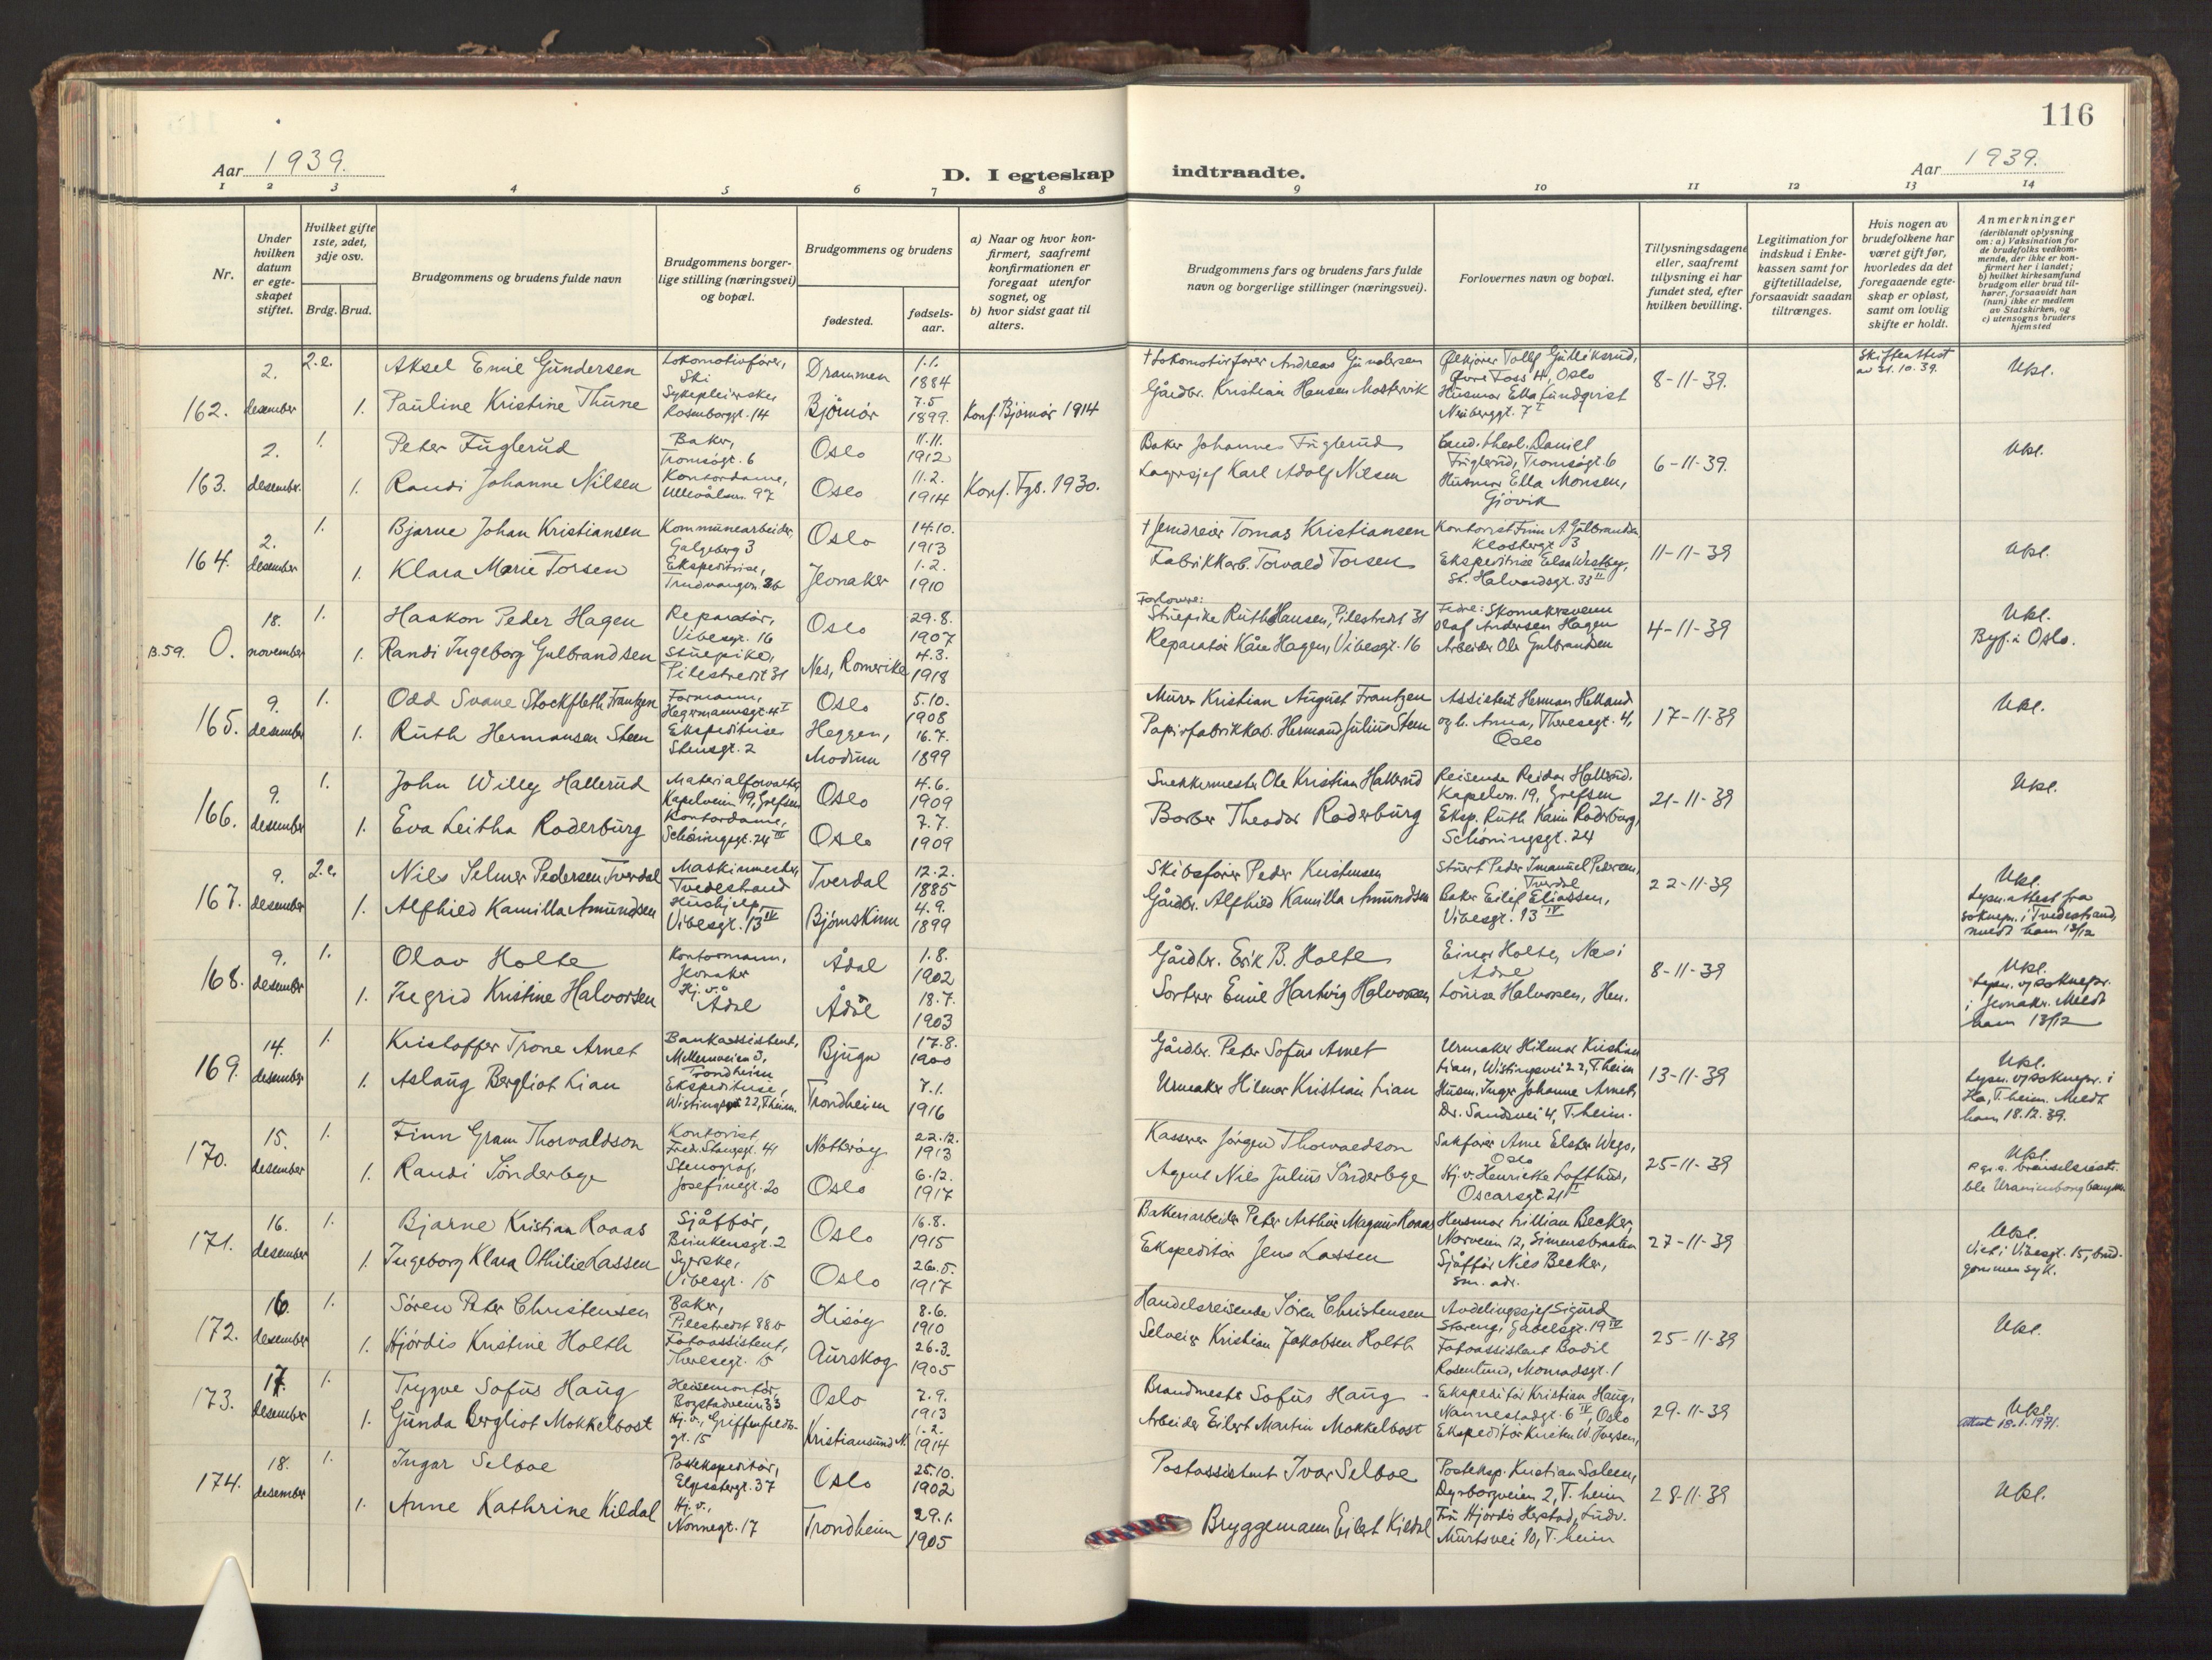 116
Aar 1939.
D. I egteskap indtraadte.
Aar 1939.
1 2 3 4 5 6 7 8 9 10 11 12 13 14
Nr.
Under hvilken datum er egteskapet stiftet.
Hvilket gifte 1ste, 2det, 3dje osv.
Brdg. Brud.
Brudgommens og brudens fulde navn
Brudgommens borgerlige stilling (næringsvei) og bopæl.
Brudgommens og brudens
fødested.
fødsels-aar.
a) Naar og hvor konfirmert, saafremt konfirmationen er foregaat utenfor sognet, og
b) hvor sidst gaat til alters.
Brudgommens fars og brudens fars fulde navn og borgerlige stillinger (næringsvei).
Forlovernes navn og bopæl.
Tillysningsdagene eller, saafremt tillysning ei har fundet sted, efter hvilken bevilling.
Legitimation for indskud i Enkekassen samt for giftetilladelse, forsaavidt saadan tiltrænges.
Hvis nogen av brudefolkene har været gift før, hvorledes da det foregaaende egteskap er opløst, samt om lovlig skifte er holdt.
Anmerkninger
(deriblandt oplysning om: a) Vaksination for de brudefolks vedkommende, der ikke er konfirmert her i landet;
b) hvilket kirkesamfund brudgom eller brud tilhører, forsaavidt han (hun) ikke er medlem av Statskirken, og
c) utensogns bruders hjemsted
162. 2. desember 2.e. Aksel Emil Gundersen Lokomotivfører, Ski Drammen 1.1. 1884 † Lokomotivfører Andreas Gundersen Ølkjører Tollf Gulliksrud, Øvre Foss 4, Oslo 8-11-39. Skifteattest av 21.10.39. Ukl.
1. Pauline Kristine Thune Sykepleierske Rosenborggt. 14 Bjørnør 7.5 1899. Konf. Bjørnør 1914 Gårdbr. Kristian Hansen Mastervik Husmor Ella Lundqvist Neuberggt. 7 I
163. 2. desember. 1. Peter Fuglerud Baker, Tromsøgt. 6 Oslo 11.11. 1912 Baker Johannes Fuglerud Cand. theol. Daniel Fuglerud, Tromsøgt. 6 6-11-39. Ukl.
1. Randi Johanne Nilsen Kontordame, Ullevålsvn. 97 Oslo 11.2. 1914 Konf. Fgb. 1930. Lagersjef Karl Adolf Nilsen Husmor Ella Monsen, Gjøvik
164. 2. desember 1. Bjarne Johan Kristiansen Kommunearbeider, Galgeberg 3 Oslo 14.10. 1913 † Jerndreier Tomas Kristiansen Kontorist Finn A. Gulbrandsen Klostergt. 3 11-11-39 Ukl.
1. Klara Marie Torsen Ekspeditrise, Trudvangvn. 26 Jevnaker 1.2. 1910 Fabrikkarb. Torvald Torsen Ekspeditrise Elsa Westbye, St. Halvardsgt. 33 II
B.59. O. 18. november 1. Haakon Peder Hagen Reparatør, Vibesgt. 16 Oslo 29.8. 1907 Forlovere: Stuepike Ruth Hansen, Pilestredet 31 Fedre: Skomakersvenn Olaf Andersen Hagen 4-11-39 Ukl. Byf. i Oslo.
1. Randi Ingeborg Gulbrandsen Stuepike, Pilestredet 31 Nes, Romerike 4.3. 1918 Reparatør Kåre Hagen, Vibesgt. 16 Arbeider Ole Gulbrandsen
165. 9. desember 1. Odd Svane Stockfleth Frantzen Formann, Hegermannsgt. 4 I Oslo 5.10. 1908 Murer Kristian August Frantzen Assistent Herman Helland 17-11-39 Ukl.
1. Ruth Hermansen Steen Ekspeditrise Stensgt. 2 Heggen, Modum 16.7. 1899 Papirfabrikkarb. Hermand Julius Steen og h. Anna, Theresegt. 4, Oslo
166. 9. desember 1. John Willy Hallerud Materialforvalter Kapelveien 19, Grefsen Oslo 4.6. 1909 Snekkermester Ole Kristian Hallerud Reisende Reidar Hallerud. Kapelvn. 19, Grefsen 21-11-39 Ukl.
1. Eva Leitha Roderburg Kontordame, Schøningsgt. 24 III Oslo 7.7. 1909 Barber Theodor Roderburg Eksp. Ruth Karin Roderburg, Schøningsgt. 24
167. 9. desember 2.e. Nils Selmer Pedersen Tverdal Maskinmester, Tvedestrand Tverdal 12.2. 1885 Skibsfører Peder Kristensen Stuert Peder Imanuel Pedersen, Tverdal 22-11-39 Ukl. Lysn. attest fra soknepr. i Tvedestrand, meldt ham 13/12
1. Alfhild Kamilla Amundsen Hushjelp, Vibesgt. 13 IV Bjørnskinn 4.9. 1899 Gårdbr. Alfhild Kamilla Amundsen Baker Eilif Eliassen, Vibesgt. 13 IV
168. 9. desember 1. Olav Holte Kontormann, Jevnaker Ådal 1.8. 1902 Gårdbr. Erik B. Holte Einar Holte, Nes i Ådal 8-11-39 Ukl. Lysn. v/soknepr. i Jevnaker. Meldt ham 13/12
1. Ingrid Kristine Halvorsen Hj.v. Ådal Ådal 18.7. 1903 Sorterer Emil Hartvig Halvorsen Louise Halvorsen, Hen.
169. 14. desember 1. Kristoffer Trone Arnet Bankassistent, Mellemveien 3, Trondheim Bjugn 17.8. 1900 Gårdbr. Peter Sofus Arnet Urmaker Hilmar Kristian Lian, Wistingsvei 22, T.heim 13-11-39 Ukl. Lysn. v/soknepr. i Ha, T.heim. Meldt ham 18.12.39.
1. Aslaug Bergliot Lian Ekspeditrise, Wistingsvei 22, T.heim. Trondheim 7.1. 1916 Urmaker Hilmar Kristian Lian Husm. Inger Johanne Arnet, Dr. Sandsvei 4, T.heim.
170. 15. desember 1. Finn Gram Thorvaldson Kontorist Fred. Stangsgt. 41 Nøtterøy 22.12. 1913 Kasserer Jørgen Thorvaldson Sakfører Arne Elster Wego, Oslo 25-11-39 Ukl. P.gr.a. brenselsrest. ble Uranienborg
1. Randi Sønderbye Stenograf, Josefinegt. 20 Oslo 6.12. 1917 Agent Nils Julius Sønderbye Hj.v. Henriette Lofthus, Oscarsgt. 21 I
171. 16. desember 1. Bjarne Kristian Raaas Sjåffør, Brinkensgt. 2 Oslo 16.8. 1915 Bakeriarbeider Peter Arthur Magnus Raaas Husmor Lillian Becker, Norveien 12, Simensbraaten 27-11-39 Ukl. Viet i Vibesgt. 15, brudgommen syk.
1. Ingeborg Klara Othilie Lassen Syerske, Vibesgt. 15 Oslo 26.5. 1917 Ekspeditør Jens Lassen Sjåffør Nils Becker, sm. adr.
172. 16. desember 1. Søren Peter Christensen Baker, Pilestredet 88b Hisøy 8.6. 1910 Handelsreisende Søren Christensen Avdelingssjef Sigurd Stareng, Gabelsgt. 19 IV 25-11-39 Ukl.
1. Hjørdis Kristine Holth Fotoassistent, Theresegt. 15 Aurskog 26.3. 1905 Selveier Kristian Jakobsen Holth Fotoassistent Bodil Rosenlund, Monradsgt. 1
173. 17. desember 1. Trygve Sofus Haug Heisemontør, Bogstadveien 33 Oslo 7.9. 1913 Brandmester Sofus Haug Ekspeditør Kristian Haug, Nannestadgt. 6 IV, Oslo 29-11-39 Ukl. attest 18.1.1971.
1. Gunda Bergliot Mokkelbost Hj.v., Griffenfeldtsgt. 15 Kristiansund N. 1.2. 1914 Arbeider Eilert Martin Mokkelbost Ekspeditør Kristen W. Iversen,
174. 18. desember 1. Ingar Selboe Postekspeditør, Elgesetergt. 37 Oslo 25.10. 1902 Postassistent Ivar Selboe Posteksp. Kristian Salen, Dyrborgveien 2, T.heim 28-11-39 Ukl.
1. Anne Kathrine Kildal Hj.v., Nonnegt. 17 Trondheim 29.1. 1905 Bryggemann Eilert Kildal Fru Hjørdis Herstad, Ludv. Murtsvei 10, T.heim